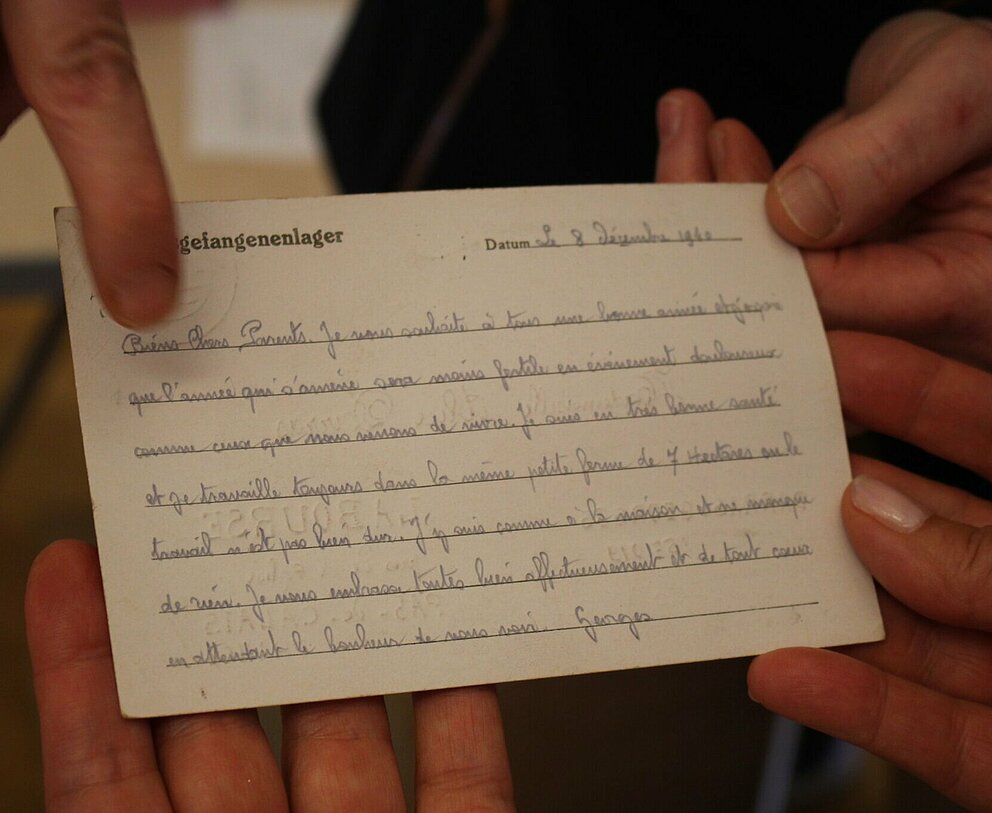 gefangenenlager
Datum Le 8 décembre 1940
Biens Chers Parents. Je vous souhaite à tous une bonne année et j'espère
que l'année qui s'amène sera moins fertile en événement douloureux
comme ceux que nous venons de vivre. Je suis en très bonne santé
et je travaille toujours dans la même petite ferme de 7 Hectares ou le
travail n'est pas bien dur. J'y suis comme à la maison et ne manque
de rien. Je vous embrasse toutes bien affectueusement et de tout cœur
en attendant le bonheur de vous voir. Georges